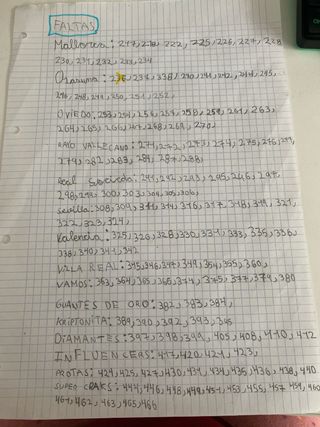 FALTAS
Mallorca: 217, 218, 222, 225, 226, 227, 228
230, 231, 232, 233, 234
Osasuna: 236, 237, 238, 240, 241, 242, 244, 245,
246, 248, 249, 250, 251, 252,
OVIEDO: 253, 254, 256, 257, 258, 259, 261, 263,
264, 265, 266, 267, 268, 269, 270,
RAYO VALLECANO: 271, 272, 273, 274, 275, 276, 277,
279, 282, 283, 284, 287, 288,
Real Sociedad: 291, 292, 293, 295, 296, 297,
298, 299, 300, 303, 304, 305, 306,
Sevilla: 308, 309, 311, 314, 316, 317, 318, 319, 321,
322, 323, 324,
Valencia: 325, 326, 328, 330, 331, 333, 335, 336,
338, 340, 341, 342
VILLA REAL: 345, 346, 347, 349, 354, 355, 360,
VAMOS: 363, 364, 365, 368, 374, 375, 377, 379, 380
GUANTES DE ORO: 382, 383, 384,
KRIPTONITA: 389, 390, 392, 393, 395
DIAMANTES: 397, 398, 399, 405, 408, 410, 412
INFLUENCERS: 417, 420, 421, 423,
PROTAS: 424, 425, 427, 430, 431, 434, 435, 436, 438, 440
SUPER CRAKS: 444, 446, 448, 449, 451, 453, 455, 457, 459, 460
461, 462, 463, 465, 466